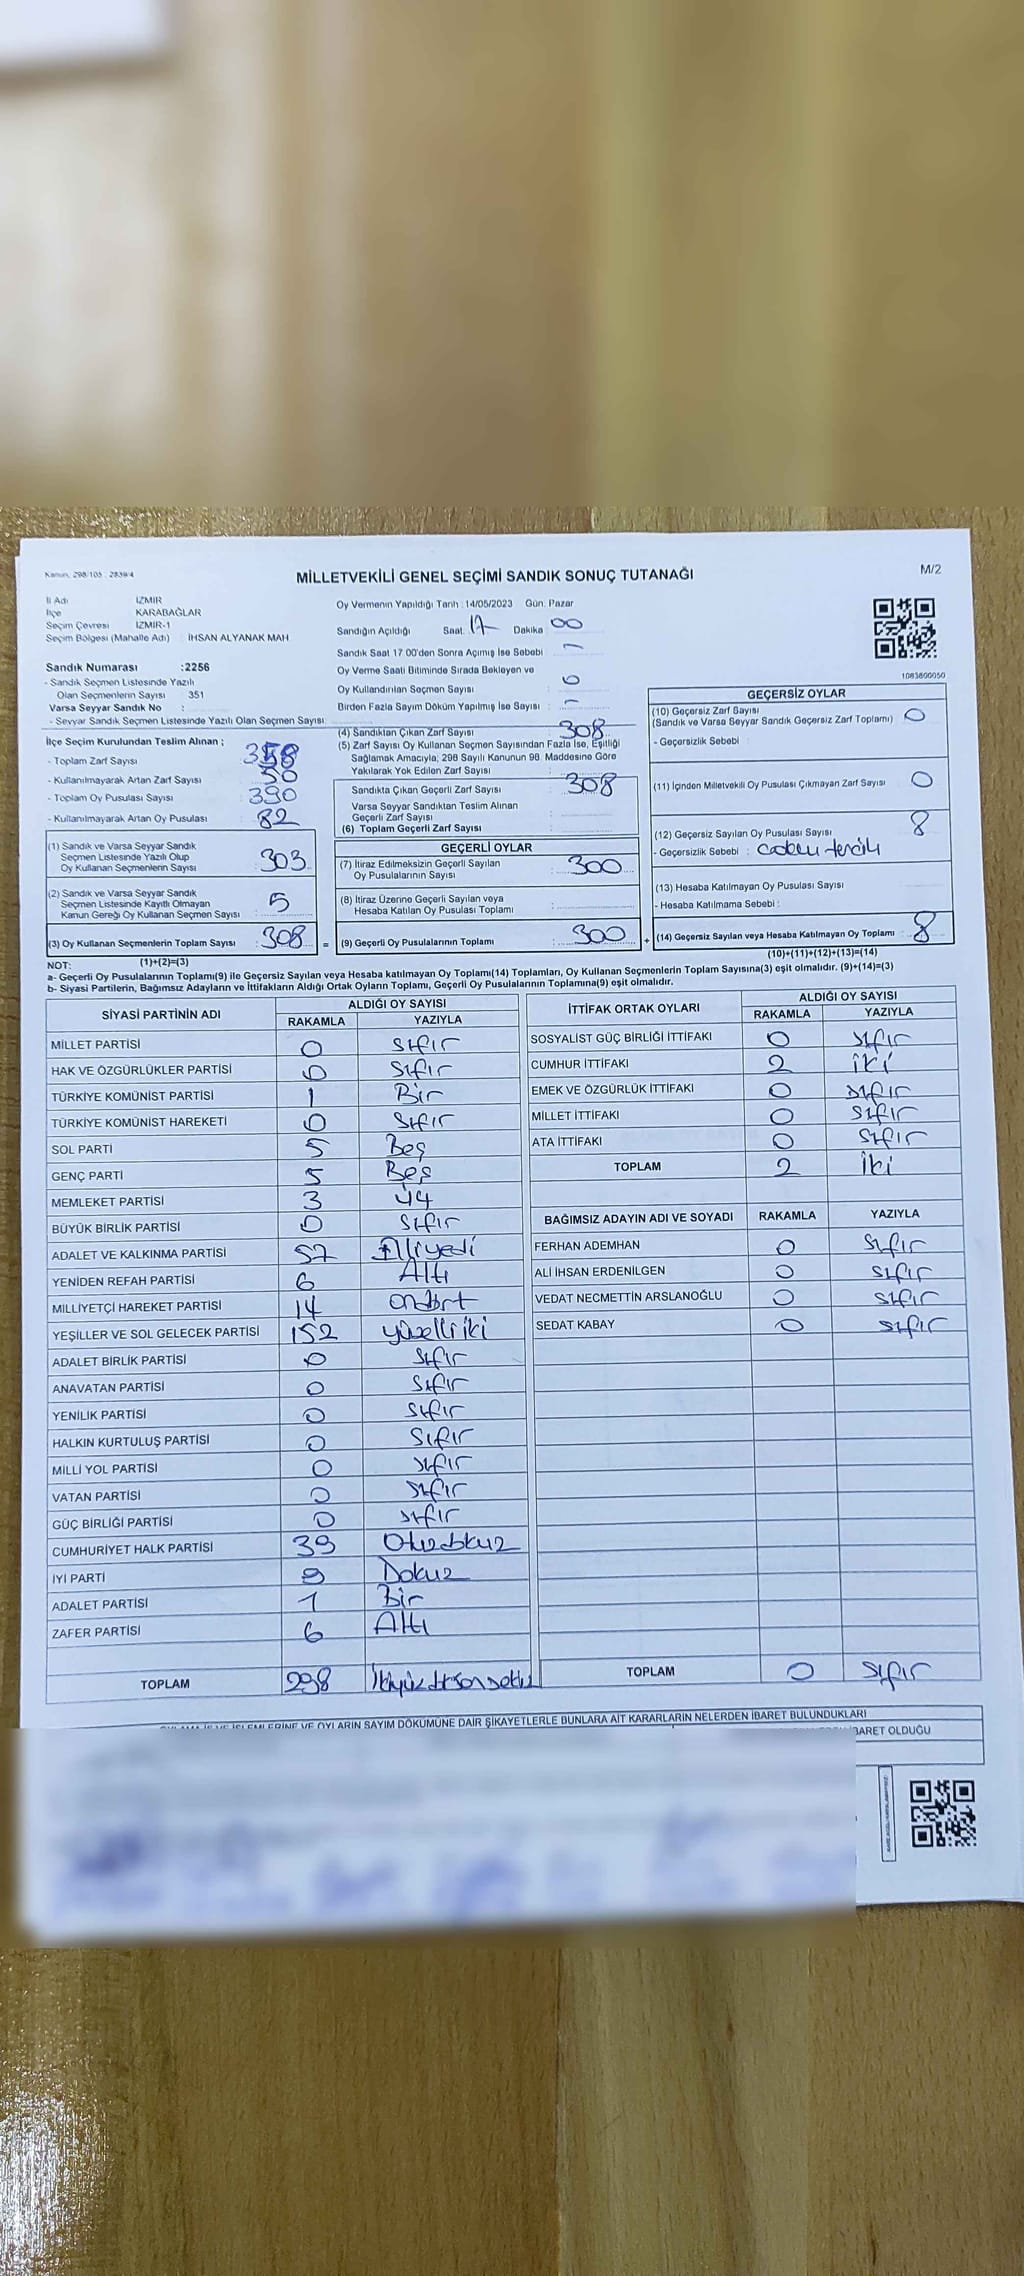 MİLLETVEKİLİ GENEL SEÇİMİ SANDIK SONUÇ TUTANAĞI
M/2
İl Adı İZMİR
İlçe KARABAĞLAR
Seçim Çevresi İZMİR-1
Seçim Bölgesi (Mahalle Adı) : İHSAN ALYANAK MAH
Sandık Numarası :2256
- Sandık Seçmen Listesinde Yazılı
Olan Seçmenlerin Sayısı : 351
Varsa Seyyar Sandık No :
- Seyyar Sandık Seçmen Listesinde Yazılı Olan Seçmen Sayısı:
Oy Vermenin Yapıldığı Tarih : 14/05/2023 Gün: Pazar
Sandığın Açıldığı Saat: 17 Dakika 00
Sandık Saat 17 00'den Sonra Açımış İse Sebebi : -
Oy Verme Saati Bitiminde Sırada Bekleyen ve
Oy Kullandırılan Seçmen Sayısı : 0
Birden Fazla Sayım Döküm Yapılmış İse Sayısı : -
1083800050
İlçe Seçim Kurulundan Teslim Alınan ;
- Toplam Zarf Sayısı : 358
- Kullanılmayarak Artan Zarf Sayısı : 50
- Toplam Oy Pusulası Sayısı : 390
- Kullanılmayarak Artan Oy Pusulası : 82
(1) Sandık ve Varsa Seyyar Sandık
Seçmen Listesinde Yazılı Olup
Oy Kullanan Seçmenlerin Sayısı : 303
(2) Sandık ve Varsa Seyyar Sandık
Seçmen Listesinde Kayıtlı Olmayan
Kanun Gereği Oy Kullanan Seçmen Sayısı : 5
(3) Oy Kullanan Seçmenlerin Toplam Sayısı : 308 =
(4) Sandıktan Çıkan Zarf Sayısı : 308
(5) Zarf Sayısı Oy Kullanan Seçmen Sayısından Fazla İse, Eşitliği
Sağlamak Amacıyla; 298 Sayılı Kanunun 98. Maddesine Göre
Yakılarak Yok Edilen Zarf Sayısı :
Sandıkta Çıkan Geçerli Zarf Sayısı : 308
Varsa Seyyar Sandıktan Teslim Alınan
Geçerli Zarf Sayısı :
(6) Toplam Geçerli Zarf Sayısı :
GEÇERLİ OYLAR
(7) İtiraz Edilmeksizin Geçerli Sayılan
Oy Pusulalarının Sayısı : 300
(8) İtiraz Üzerine Geçerli Sayılan veya
Hesaba Katılan Oy Pusulası Toplamı :
(9) Geçerli Oy Pusulalarının Toplamı : 300 +
GEÇERSİZ OYLAR
(10) Geçersiz Zarf Sayısı
(Sandık ve Varsa Seyyar Sandık Geçersiz Zarf Toplamı) : 0
- Geçersizlik Sebebi :
(11) İçinden Milletvekili Oy Pusulası Çıkmayan Zarf Sayısı : 0
(12) Geçersiz Sayılan Oy Pusulası Sayısı : 8
- Geçersizlik Sebebi :
(13) Hesaba Katılmayan Oy Pusulası Sayısı :
- Hesaba Katılmama Sebebi :
(14) Geçersiz Sayılan veya Hesaba Katılmayan Oy Toplamı : 8
NOT: (1)+(2)=(3) (10)+(11)+(12)+(13)=(14)
a- Geçerli Oy Pusulalarının Toplamı(9) ile Geçersiz Sayılan veya Hesaba katılmayan Oy Toplamı(14) Toplamları, Oy Kullanan Seçmenlerin Toplam Sayısına(3) eşit olmalıdır. (9)+(14)=(3)
b- Siyasi Partilerin, Bağımsız Adayların ve İttifakların Aldığı Ortak Oyların Toplamı, Geçerli Oy Pusulalarının Toplamına(9) eşit olmalıdır.
SİYASİ PARTİNİN ADI ALDIĞI OY SAYISI
RAKAMLA YAZIYLA
MİLLET PARTİSİ 0 sıfır
HAK VE ÖZGÜRLÜKLER PARTİSİ 0 sıfır
TÜRKİYE KOMÜNİST PARTİSİ 1 Bir
TÜRKİYE KOMÜNİST HAREKETİ 0 sıfır
SOL PARTİ 5 Beş
GENÇ PARTİ 5 Beş
MEMLEKET PARTİSİ 3 üç
BÜYÜK BİRLİK PARTİSİ 0 sıfır
ADALET VE KALKINMA PARTİSİ 57 Elliyedi
YENİDEN REFAH PARTİSİ 6 Altı
MİLLİYETÇİ HAREKET PARTİSİ 14 ondört
YEŞİLLER VE SOL GELECEK PARTİSİ 152 yüzelliiki
ADALET BİRLİK PARTİSİ 0 sıfır
ANAVATAN PARTİSİ 0 sıfır
YENİLİK PARTİSİ 0 sıfır
HALKIN KURTULUŞ PARTİSİ 0 sıfır
MİLLİ YOL PARTİSİ 0 sıfır
VATAN PARTİSİ 0 sıfır
GÜÇ BİRLİĞİ PARTİSİ 0 sıfır
CUMHURİYET HALK PARTİSİ 39 Otuzdokuz
İYİ PARTİ 9 Dokuz
ADALET PARTİSİ 1 Bir
ZAFER PARTİSİ 6 Altı
TOPLAM 298
İTTİFAK ORTAK OYLARI ALDIĞI OY SAYISI
RAKAMLA YAZIYLA
SOSYALİST GÜÇ BİRLİĞİ İTTİFAKI 0 sıfır
CUMHUR İTTİFAKI 2 iki
EMEK VE ÖZGÜRLÜK İTTİFAKI 0 sıfır
MİLLET İTTİFAKI 0 sıfır
ATA İTTİFAKI 0 sıfır
TOPLAM 2 iki
BAĞIMSIZ ADAYIN ADI VE SOYADI RAKAMLA YAZIYLA
FERHAN ADEMHAN 0 sıfır
ALİ İHSAN ERDENİLGEN 0 sıfır
VEDAT NECMETTİN ARSLANOĞLU 0 sıfır
SEDAT KABAY 0 sıfır
TOPLAM 0 sıfır
OYLARIN SAYIM DÖKÜMÜNE DAİR ŞİKAYETLERLE BUNLARA AİT KARARLARIN NELERDEN İBARET BULUNDUKLARI
İBARET OLDUĞU